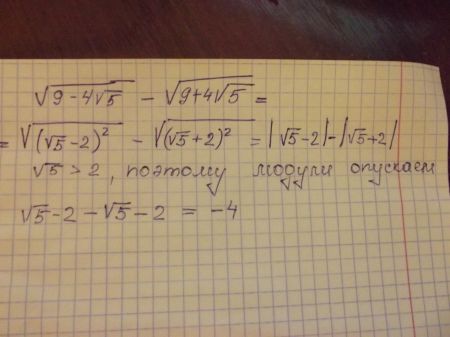 √(9 - 4√5) - √(9+4√5) =
= √((√5 - 2)²) - √((√5 + 2)²) = |√5 - 2| - |√5+2|
√5 > 2, поэтому модули опускаем
√5 - 2 - √5 - 2 = -4